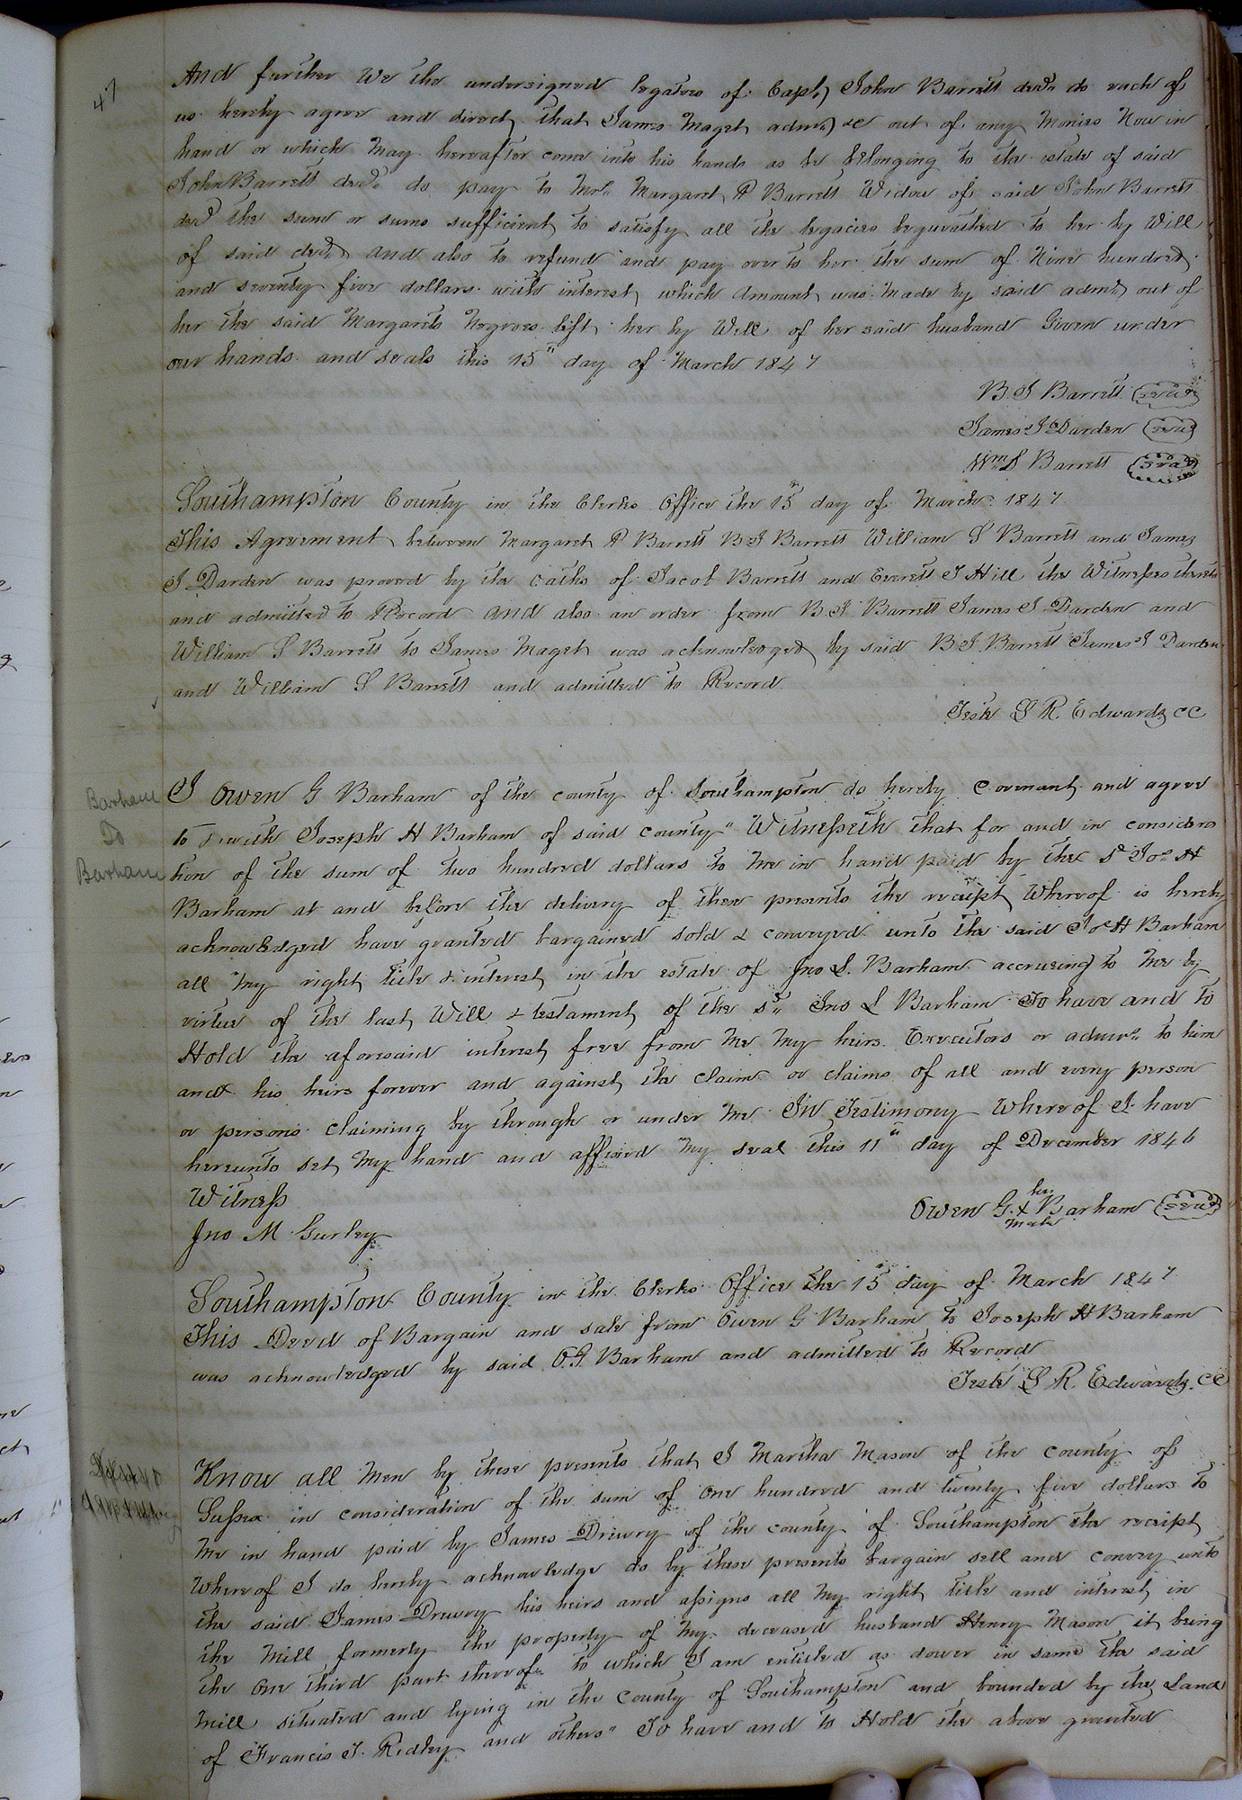 47
And further We the undersigned legatees of Capt John Barrett decd do each of
us hereby agree and direct that James Maget admr &c out of any Monies Now in
hand or which May hereafter come into his hands as be belonging to the estate of said
John Barrett decd do pay to Mrs Margaret P Barrett Widow of said John Barrett
decd the sum or sums sufficient to satisfy all the legacies bequeathed to her by Will
of said decd and also to refund and pay over to her the sum of Nine hundred
and seventy five dollars with interest which Amount was Made by said admr out of
her the said Margarets Negroes left her by Will of her said husband Given under
our hands and seals this 15" day of March 1847
B. J Barrett (seal)
James J Darden (seal)
Wm S Barrett (seal)
Southampton County in the Clerks Office the 15" day of March 1847
This Agreement between Margaret P Barrett B J Barrett William S Barrett and James
J Darden was proved by the oaths of Jacob Barrett and Everett J Hill the Witnesses thereto
and admitted to Record and also an order from B J Barrett James J Darden and
William S Barrett to James Maget was acknowledged by said B J Barrett James J Darden
and William S Barrett and admitted to Record
Teste L R. Edwards CC
Barham
To
Barham
I Owen G Barham of the county of Southampton do hereby Covenant and agree
to & with Joseph H Barham of said county" Witnesseth that for and in considera
tion of the sum of two hundred dollars to Me in hand paid by the sd Jos H
Barham at and before the delivery of these presents the receipt Whereof is hereby
acknowledged have granted bargained sold & conveyed unto the said Jos H Barham
all My right title & interest in the estate of Jno L. Barham accrueing to Me by
virtue of the last Will & testament of the sd Jno L Barham To have and to
Hold the aforesaid interest free from Me My heirs Executors or admrs to him
and his heirs forever and against the claim or claims of all and every person
or persons claiming by through or under Me In Testimony Whereof I have
hereunto set My hand and affixed My seal this 11" day of December 1846
Witness
Owen G. his X mark Barham (seal)
Jno M Gurley
Southampton County in the Clerks Office the 15" day of March 1847
This Deed of Bargain and sale from Owen G Barham to Joseph H Barham
was acknowledged by said O. G. Barham and admitted to Record
Teste L R. Edwards. CC
Know all Men by these presents that I Martha Mason of the county of
Sussex in consideration of the sum of One hundred and twenty five dollars to
Me in hand paid by James Drewry of the county of Southampton the receipt
Whereof I do hereby acknowledge do by these presents bargain sell and convey unto
the said James Drewry his heirs and assigns all My right title and interest in
the Mill formerly the property of My deceased husband Henry Mason it being
the One third part thereof to which I am entitled as dower in same the said
Mill situated and lying in the County of Southampton and bounded by the Land
of Francis T. Ridley and others" To have and to Hold the above granted